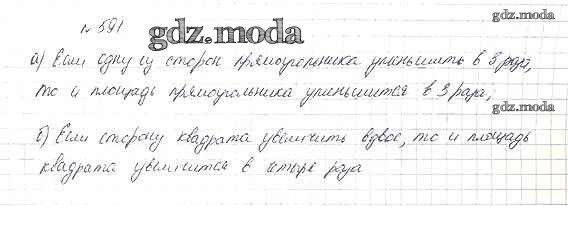 № 591
gdz.moda
gdz.moda
а) Если одну из сторон прямоугольника уменьшить в 3 раза,
то и площадь прямоугольника уменьшится в 3 раза;
gdz.moda
б) Если сторону квадрата увеличить вдвое, то и площадь
квадрата увеличится в четыре раза